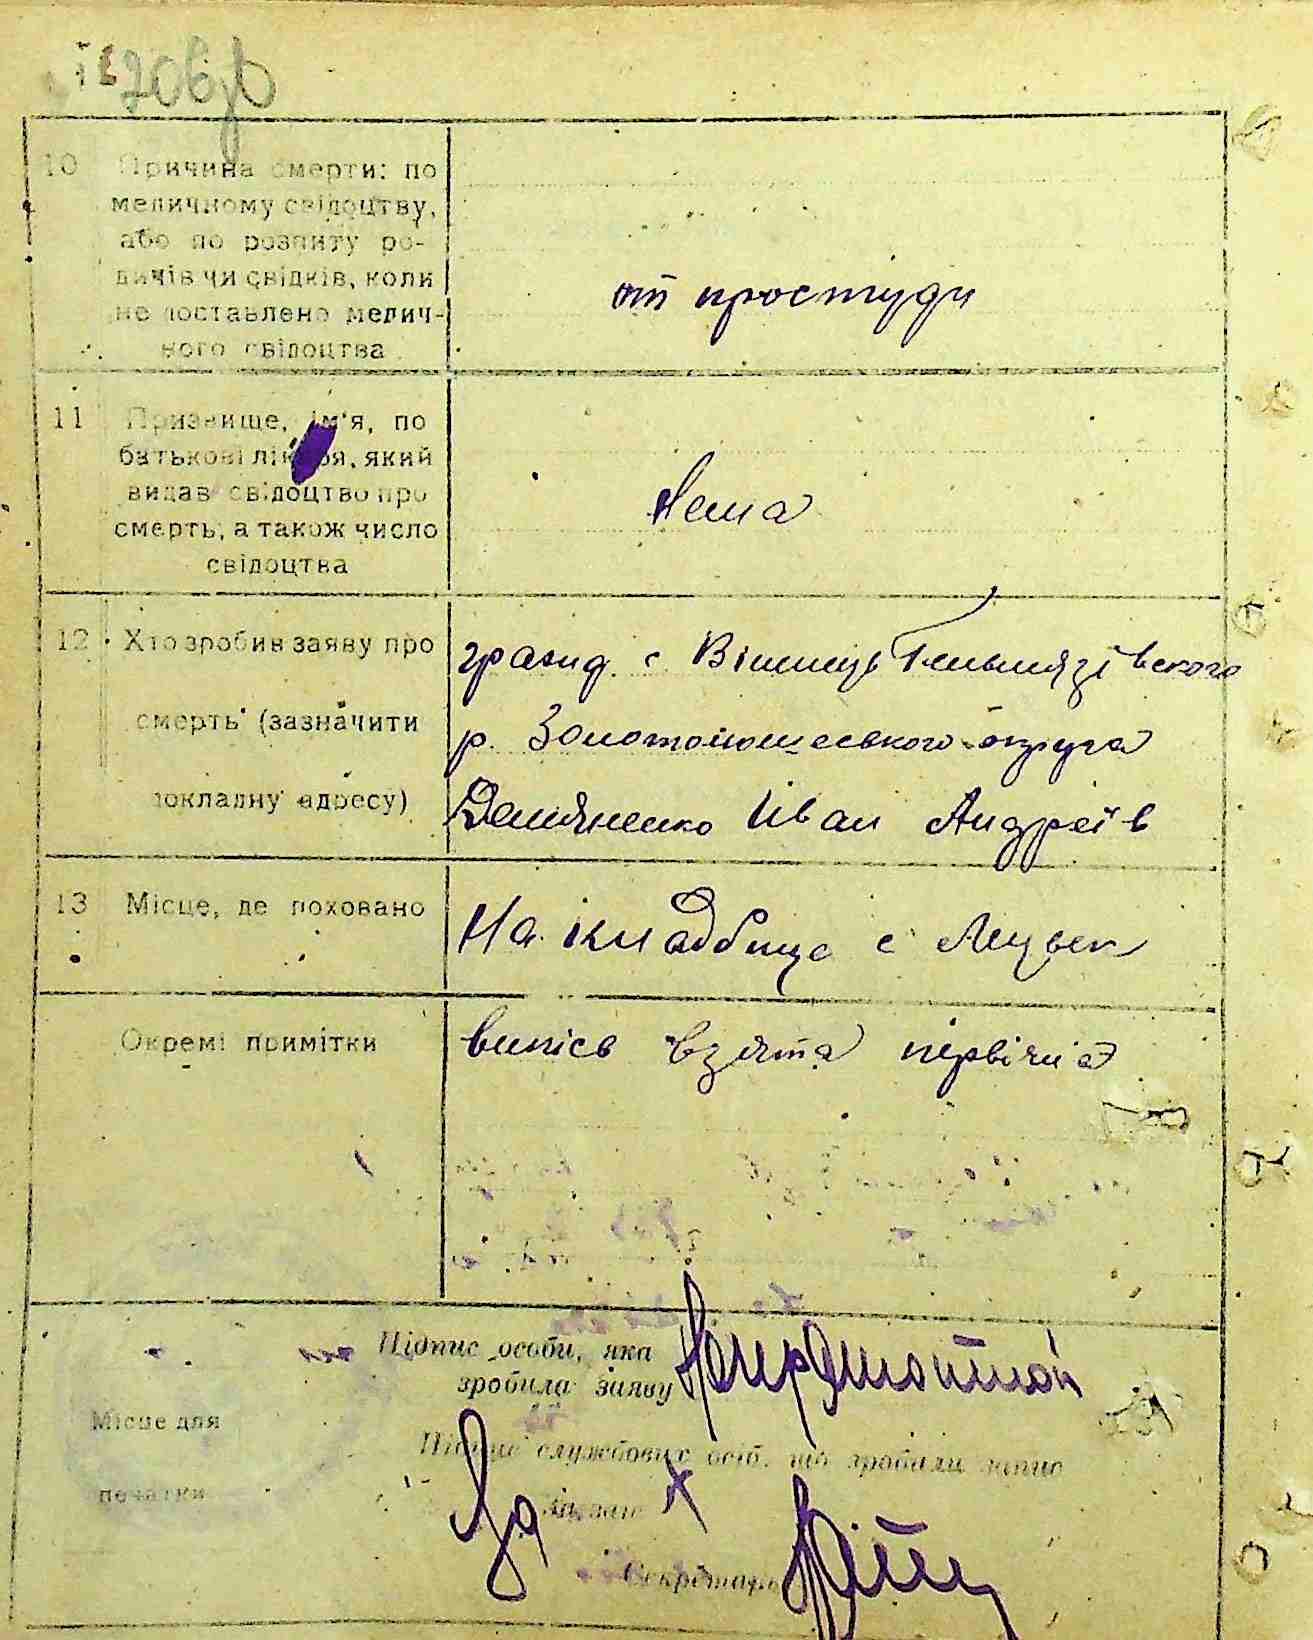 10 Причина смерти: по
медичному свідоцтву,
або по розпиту ро-
дичів чи свідків, коли
не доставлено медич-
ного свідоцтва
от простуди
11 Призвище, ім'я, по
батькові лікаря, який
видав свідоцтво про
смерть, а також число
свідоцтва
Нема
12 Хто зробив заяву про
смерть (зазначити
докладну адресу)
гражд. с Вінниць Гельмязівського
р. Золотонош округа
Демяненко Іван Андреїв
13 Місце, де поховано
На кладбище с
Окремі примітки
випісь взята первічна
Підпис особи, яка
зробила заяву
Місце для
печатки
Підпис службових осіб, що зробили запис
За
Секретарь